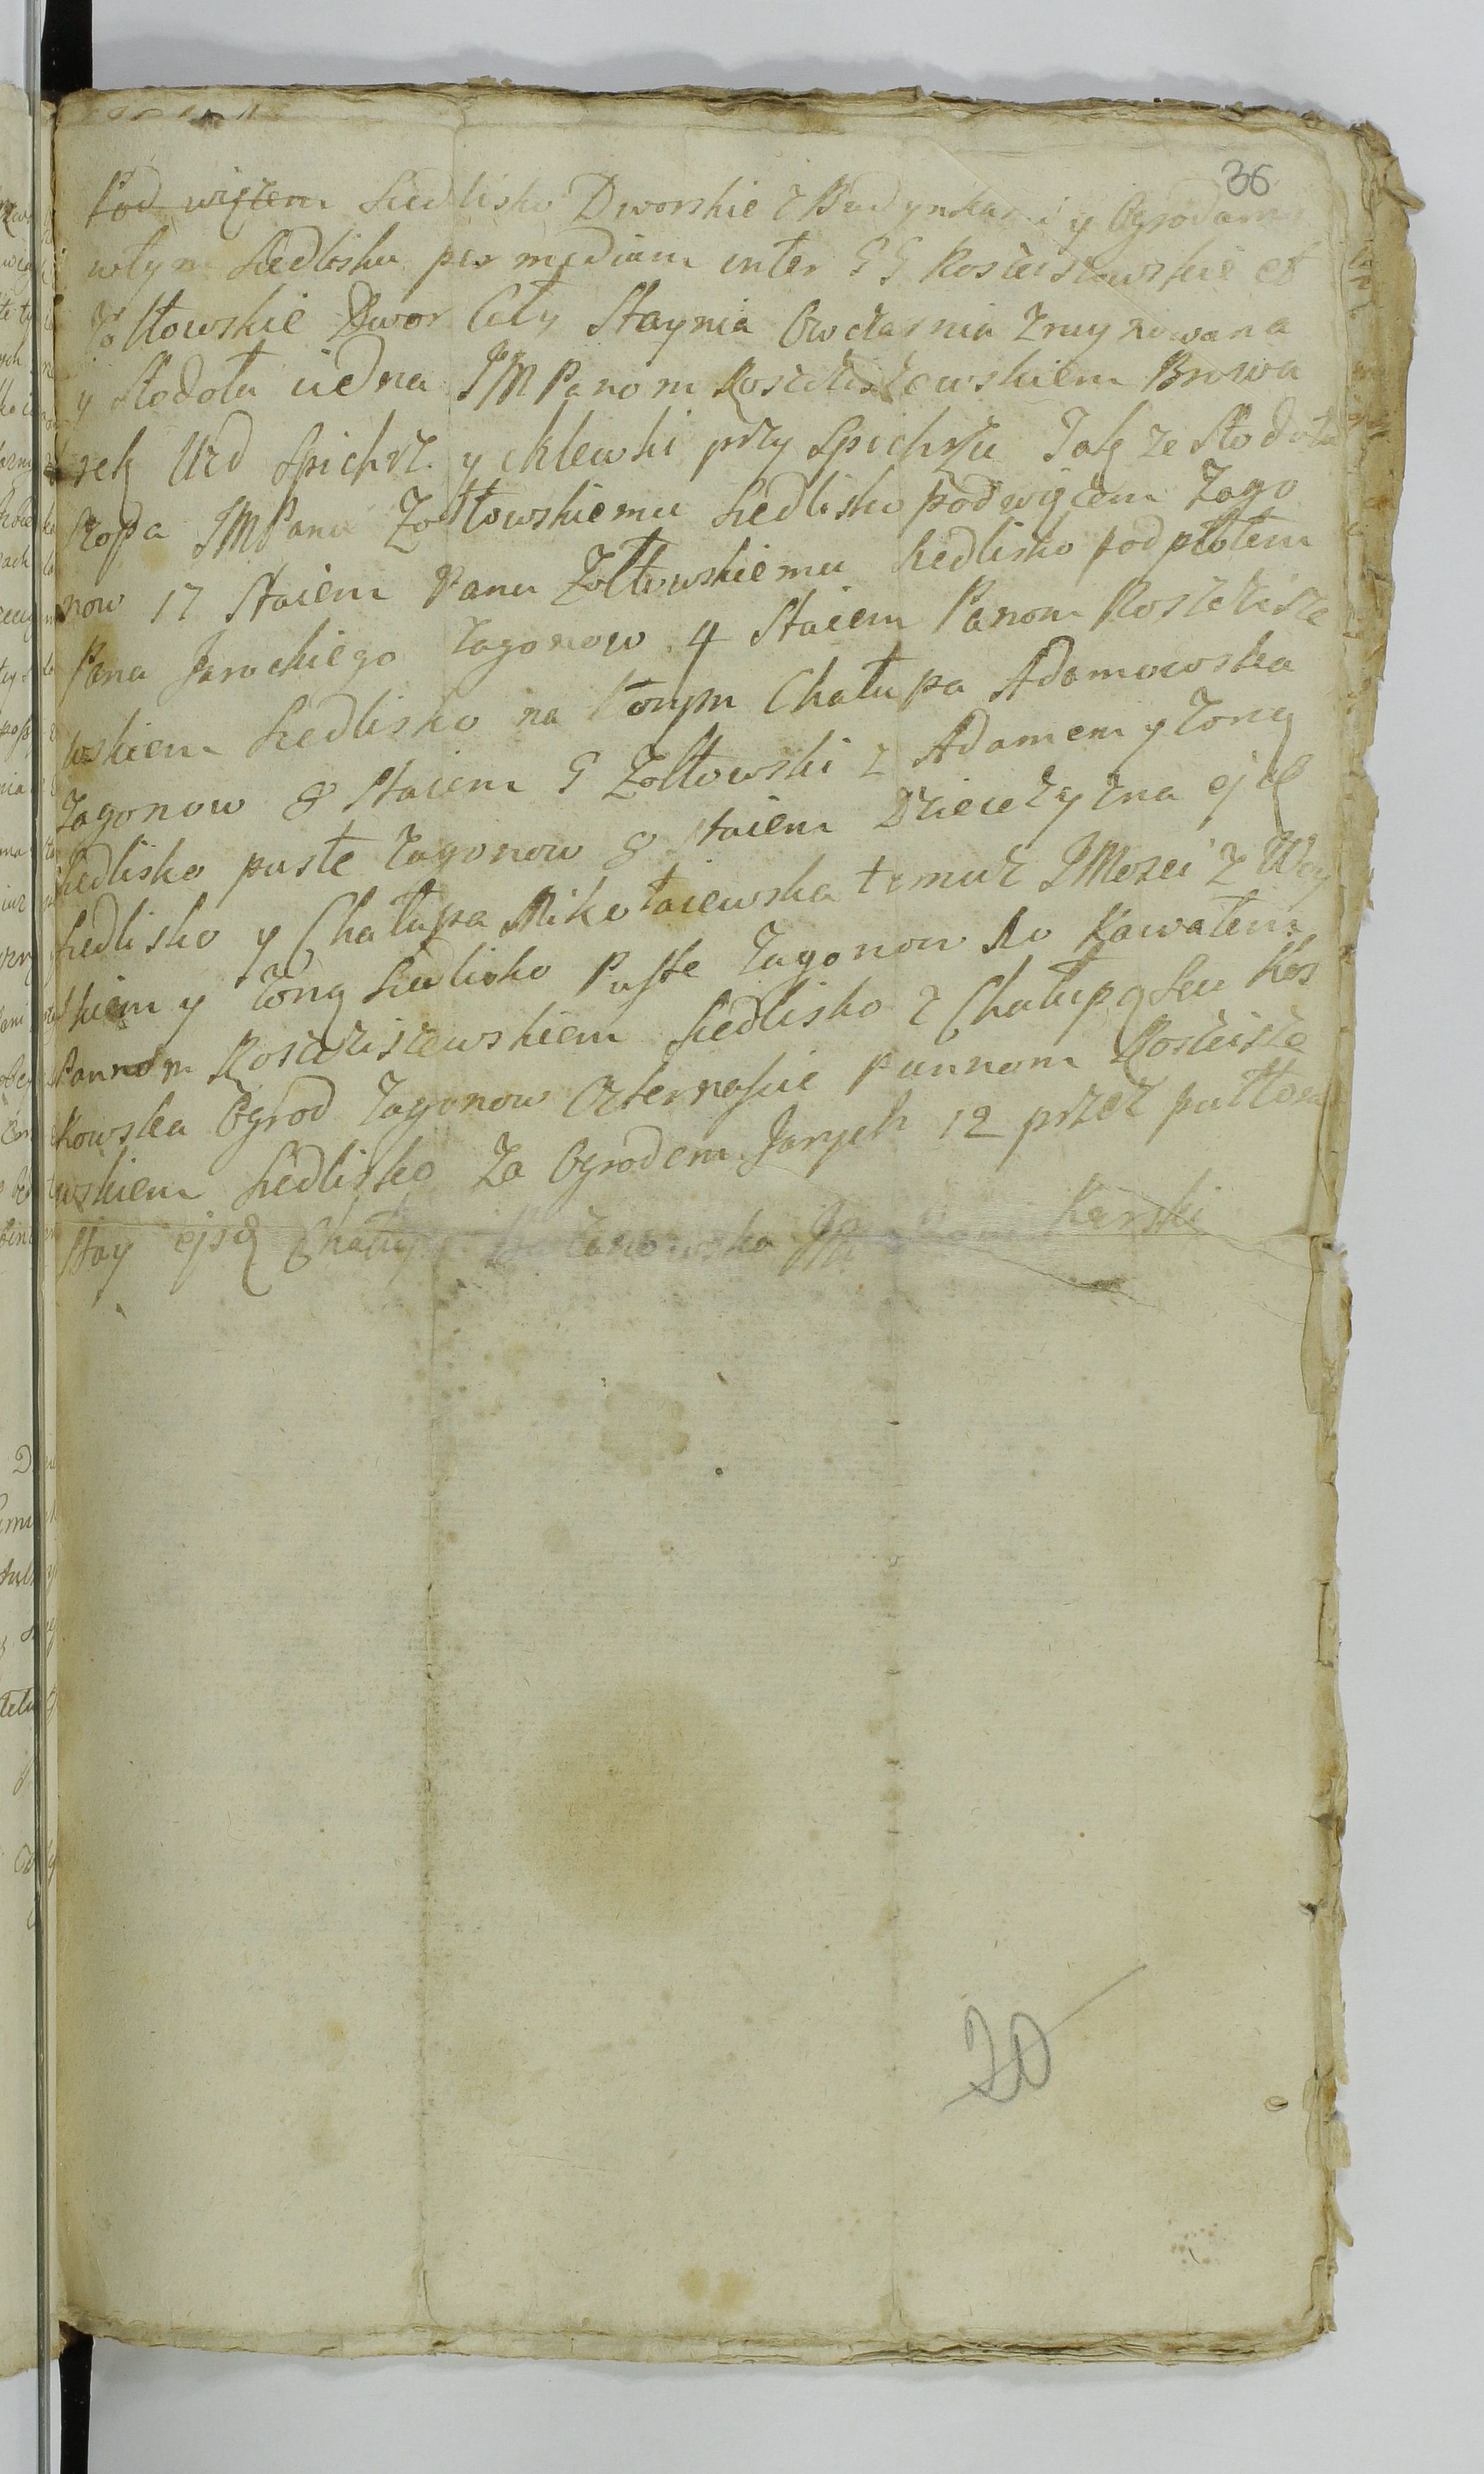 36
Pod więzem Siedlisko Dworskie z Budynkami y Ogrodami
wtym Siedlisku per mediam inter GG Rosciszowskie et
Zołtowskie Dwor Cały Staynia Owczarnia Zruynowana
y Stodoła iedna IMPanom Rosciszewskiem Browa
rek Spichrz y chlewki przy Spichrzu Takze Stodoła
Szopa IMPanu Zołtowskiemu Siedlisko podwięzem Zago
now 17 Staiem Panu Zołtowskiemu Siedlisko pod płotem
Pana Jarockiego Zagonow 4 Staiem Panom Roscisze
wskiem Siedlisko na ktorym Chałupa Adamowska
Zagonow 8 Staiem G Zołtowski z Adamem y Zoną
Siedlisko puste Zagonow 8 Staiem
Siedlisko y Chałupa Mikołaiewska temuz IMosci z Woy
kiem y Zoną Siedlisko Puste Zagonow Kawałem
Pannom Rosciszewskiem Siedlisko z Chałupą Seu Kos
kowska Ogrod Zagonow Czternascie Pannom Roscisze
wskiem Siedlisko Za Ogrodem Jarych 12 przez pułtora
Stay Chałupa Karski
20